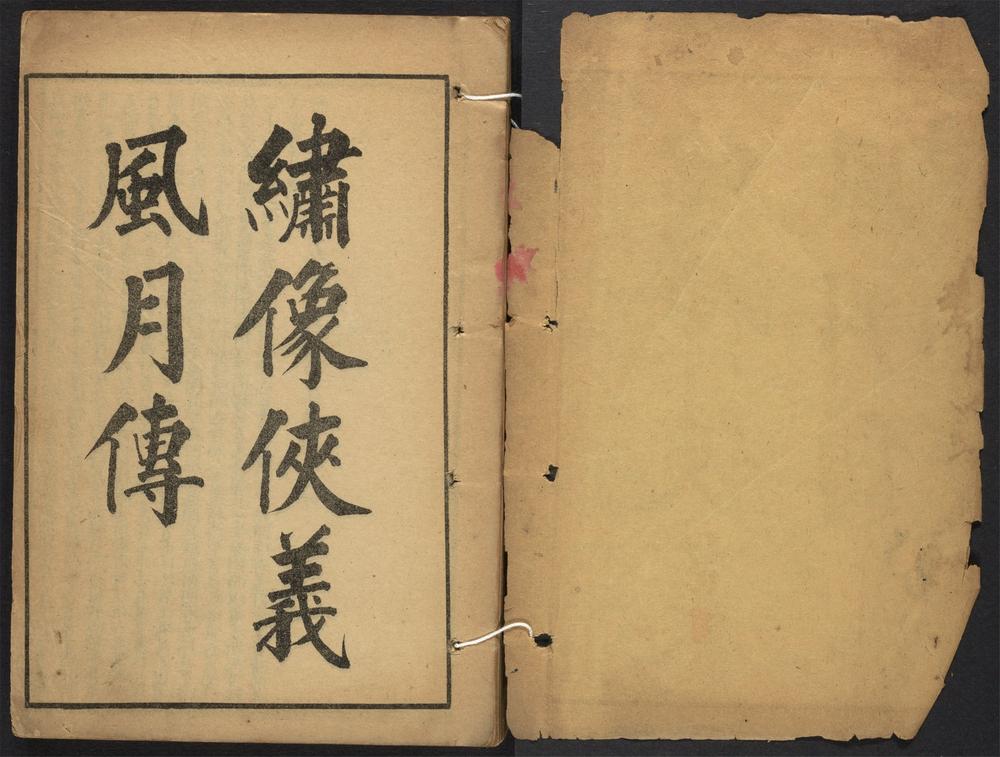 繡像俠義
風月傳